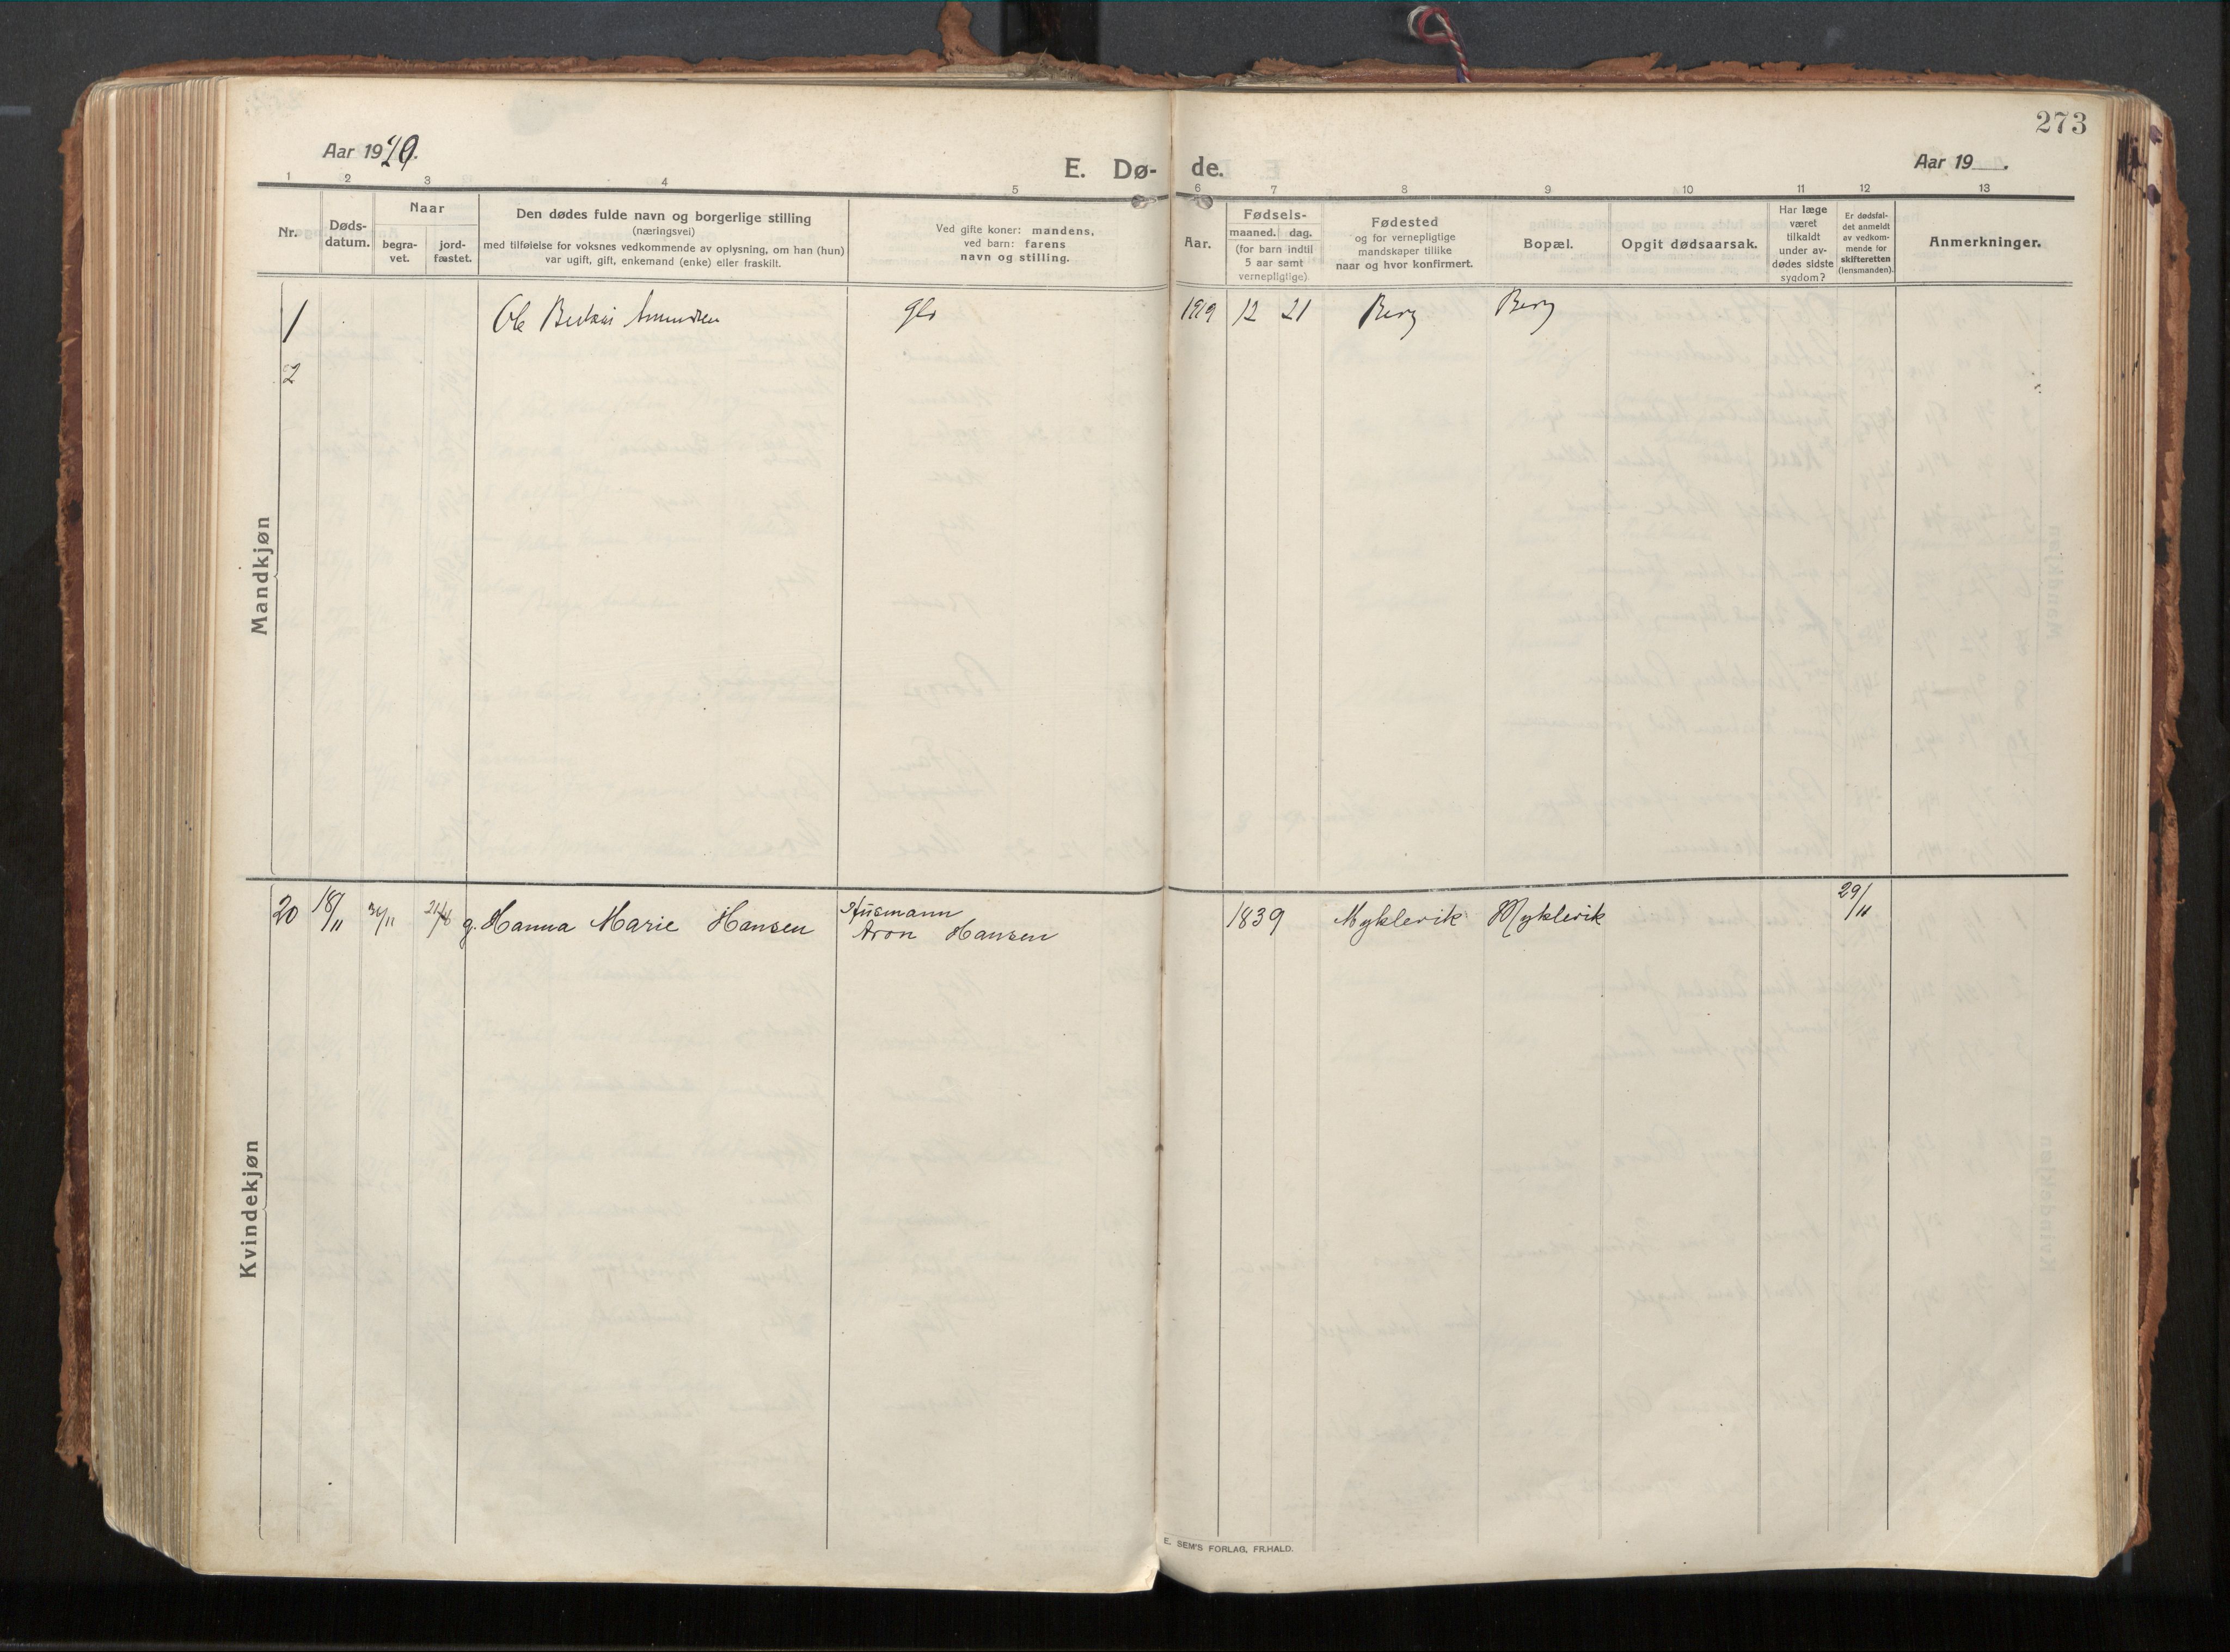 273
Aar 19
Aar 19
E. Dø- de.
1 2 3 4 5 6 7 8 9 10 11 12 13
Nr.
Døds-
datum.
Naar
begra-
vet.
jord-
fæstet.
Den dødes fulde navn og borgerlige stilling
(næringsvei)
med tilføielse for voksnes vedkommende av oplysning, om han (hun)
var ugift, gift, enkemand (enke) eller fraskilt.
Ved gifte koner: mandens,
ved barn: farens
navn og stilling.
Aar.
Fødsels-
maaned. dag.
(for barn indtil
5 aar samt
vernepligtige).
Fødested
og for vernepligtige
mandskaper tillike
naar og hvor konfirmert.
Bopæl.
Opgit dødsaarsak.
Har læge
været
tilkaldt
under av-
dødes sidste
sygdom?
Er dødsfal-
det anmeldt
av vedkom-
mende for
skifteretten
(lensmanden).
Anmerkninger.
Mandkjøn
1 Ole 1919 12 21 Berg Berg
2
Kvindekjøn
20 18/11 g. Hanna Marie Hansen Husmann
Aron Hansen 1839 Myklevik Myklevik 29/11
E. SEM'S FORLAG, FR.HALD.